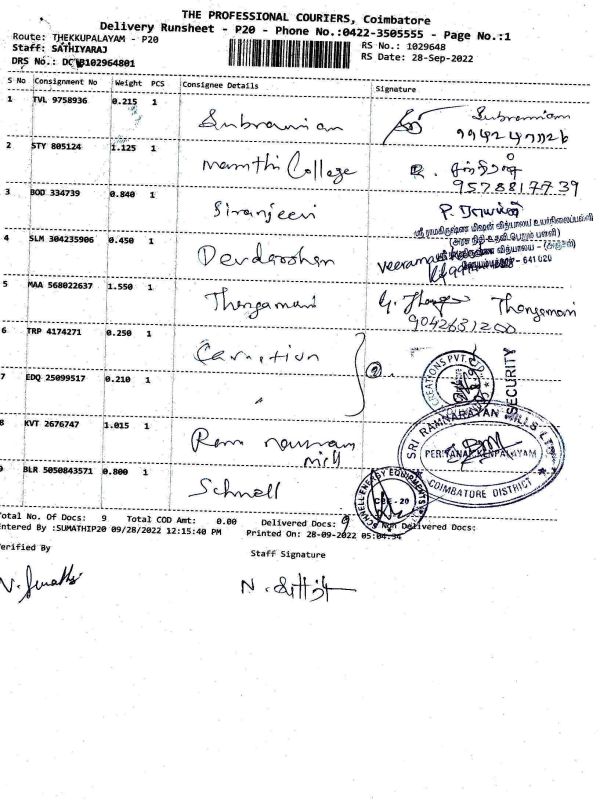 THE PROFESSIONAL COURIERS, Coimbatore
Delivery Runsheet - P20 - Phone No.:0422-3505555 - Page No.:1
Route: THEKKUPALAYAM - P20
RS No.: 1029648
Staff: SATHIYARAJ
RS Date: 28-Sep-2022
DRS No.: 102964801
S No Consignment No Weight PCS Consignee Details Signature
1 TVL 9758936 0.215 1 Subramiam Subramiam
2 STY 805124 1.125 1 College
9578817739
3 BOD 334739 0.840 1 Siranjeevi P.
ஸ்ரீ ராமகிருஷ்ண மிஷன் வித்யாலய
(அரசு நிதி உதவி பெறும் பள்ளி)
4 SLM 304235906 0.450 1 Devdarshan
- 641 020
5 MAA 568022637 1.550 1 Thangamani Thangamani
9042631200
6 TRP 4174271 0.250 1 Carnation 2
CREATIONS PVT. LTD.
SECURITY
7 EDQ 25099517 0.210 1 "
8 KVT 2676747 1.015 1 Ram narayan
mill
SRI RAMNARAYAN MILLS LTD
PERIYANAICKENPALAYAM
COIMBATORE DISTRICT
9 BLR 5050843571 0.800 1 Schnell
SCHNELL ENERGY EQUIPMENTS
CBE - 20
Total No. Of Docs: 9 Total COD Amt: 0.00 Delivered Docs: 9 Non Delivered Docs:
Entered By :SUMATHIP20 09/28/2022 12:15:40 PM Printed On: 28-09-2022 05:04:34
Verified By
Staff Signature
V. Sumathi
N.